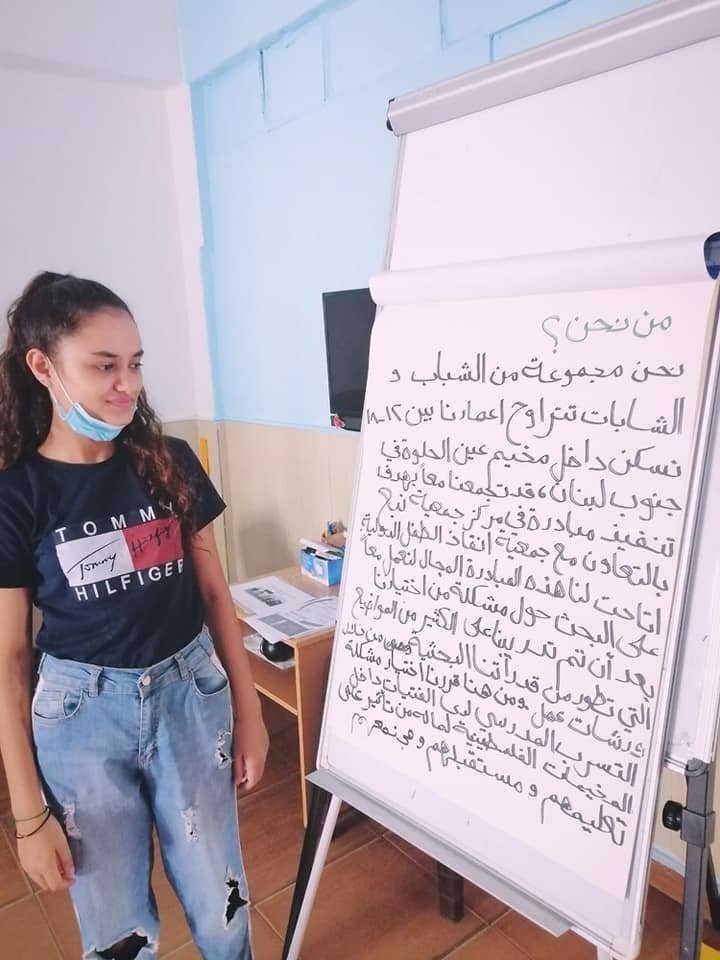 من نحن ؟
نحن مجموعة من الشباب و
الشابات تتراوح اعمارنا بين ١٢ـ١٨
نسكن داخل مخيم عين الحلوة في
جنوب لبنان، قد تجمعنا معاً بهدف
تنفيذ مبادرة في مركز جمعية نبع
بالتعاون مع جمعية انقاذ الطفل الدولية
اتاحت لنا هذه المبادرة المجال لنعمل معاً
على البحث حول مشكلة من اختيارنا
بعد أن تم تدريبنا على الكثير من المواضيع
التي تطور من قدراتنا البحثية من خلال
ورشات عمل. ومن هنا قررنا اختيار مشكلة
التسرب المدرسي لدى الفتيات داخل
المخيمات الفلسطينية لما له من تأثير على
تعليمهم و مستقبلهم و مجتمعهم
TOMMY
Tommy Hilfiger
HILFIGER